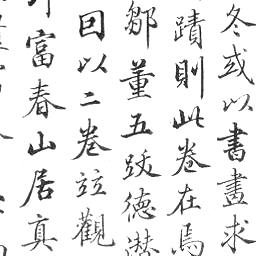 冬或以書畫求
蹟則此卷在焉
鄒董五跋德潜
回以二卷竝觀
富春山居真